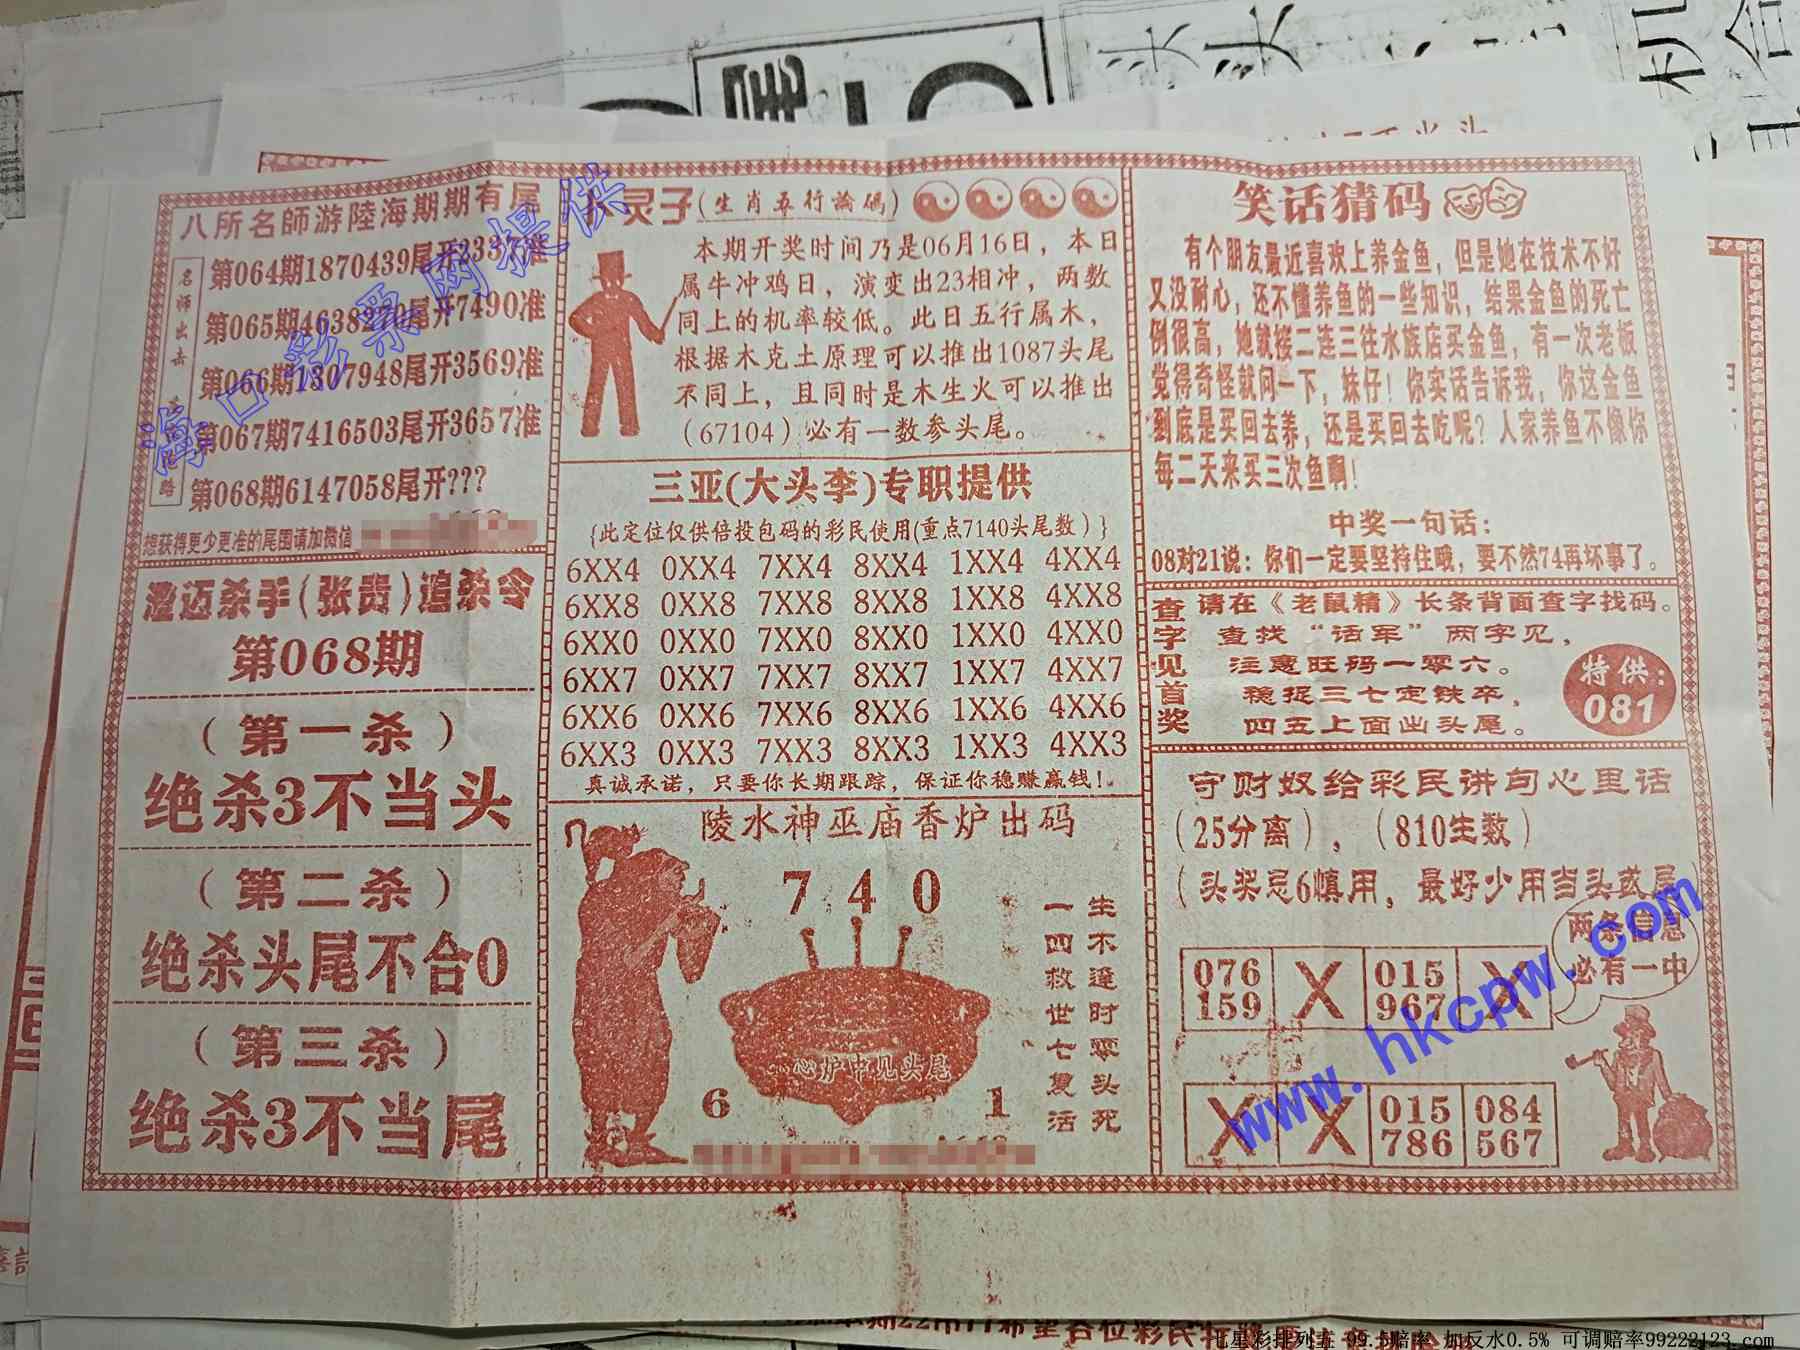 八所名師游陸海期期有尾
名师出击
路
第064期1870439尾开2337准
第065期4638270尾开7490准
第066期1307948尾开3569准
第067期7416503尾开3657准
第068期6147058尾开???
想获得更少更准的尾围请加微信
澄迈杀手(张贵)追杀令
第068期
(第一杀)
绝杀3不当头
(第二杀)
绝杀头尾不合0
(第三杀)
绝杀3不当尾
灵子(生肖五行論碼)
本期开奖时间乃是06月16日，本日
属牛冲鸡日，演变出23相冲，两数
同上的机率较低。此日五行属木，
根据木克土原理可以推出1087头尾
不同上，且同时是木生火可以推出
(67104)必有一数参头尾。
三亚(大头李)专职提供
{此定位仅供倍投包码的彩民使用(重点7140头尾数)}
6XX4 0XX4 7XX4 8XX4 1XX4 4XX4
6XX8 0XX8 7XX8 8XX8 1XX8 4XX8
6XX0 0XX0 7XX0 8XX0 1XX0 4XX0
6XX7 0XX7 7XX7 8XX7 1XX7 4XX7
6XX6 0XX6 7XX6 8XX6 1XX6 4XX6
6XX3 0XX3 7XX3 8XX3 1XX3 4XX3
真诚承诺，只要你长期跟踪，保证你稳赚赢钱!
陵水神巫庙香炉出码
7 4 0
心炉中见头尾
6 1
生不逢时零头死
一四救世七复活
笑话猜码
有个朋友最近喜欢上养金鱼，但是她在技术不好
又没耐心，还不懂养鱼的一些知识，结果金鱼的死亡
例很高，她就接二连三往水族店买金鱼，有一次老板
觉得奇怪就问一下，妹仔！你实话告诉我，你这金鱼
到底是买回去养，还是买回去吃呢？人家养鱼不像你
每二天来买三次鱼啊！
中奖一句话：
08对21说：你们一定要坚持住哦，要不然74再坏事了。
查字见首奖
请在《老鼠精》长条背面查字找码。
查找“话军”两字见，
注意旺码一零六。
稳捉三七定铁卒，
四五上面出头尾。
特供：
081
守财奴给彩民讲句心里话
(25分离)，(810生数)
(头奖忌6慎用，最好少用当头或尾
两条信息
必有一中
076 X 015 X
159 967
X X 015 084
786 567
海口彩票网提供
www.hkcpw.com
七星彩排列五 99.5赔率 加反水0.5% 可调赔率99222123.com